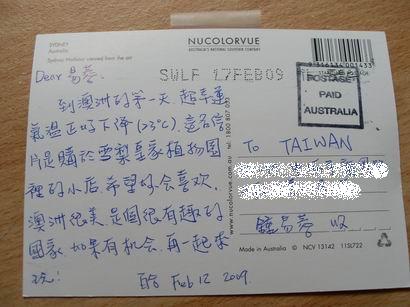 SYDNEY
Australia
Sydney Harbour viewed from the air
NUCOLORVUE
AUSTRALIA'S NATIONAL SOUVENIR COMPANY
9 316134 001433
SWLF 17FEB09
POSTAGE
PAID
AUSTRALIA
Dear 易蓉:
到澳洲的第一天, 超幸運
氣溫正好下降 (23°C). 這名信
片是購於雪梨皇家植物園
裡的小店. 希望妳会喜欢.
澳洲很美. 是個很有趣的
國家. 如果有机会, 再一起來
玩!
Feb 12 2009.
To TAIWAN
鍾易蓉 收
www.nucolorvue.com.au tel: 1800 807 030
Made in Australia © NCV 13142 11SL722